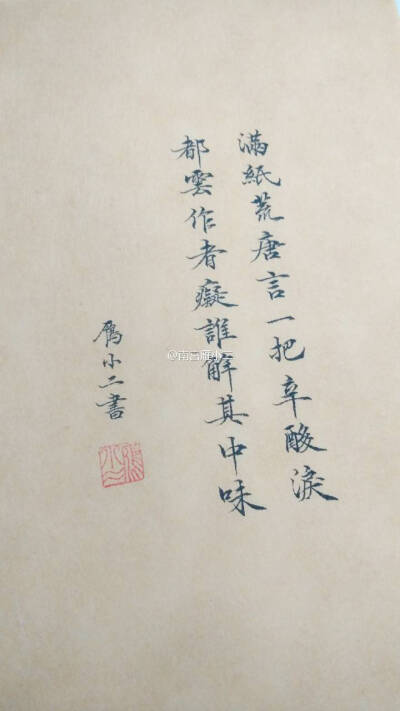 滿紙荒唐言一把辛酸淚
都雲作者癡誰解其中味
雁小二書
@南宫雁小二